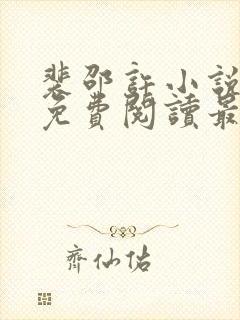 裴邵許小說
免費閱讀最
齊仙佑